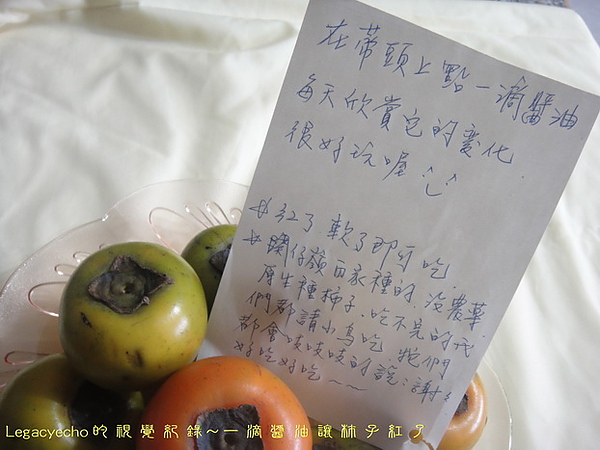 在蒂頭上點一滴醬油
每天欣賞它的變化
很好玩喔
紅了軟了即可吃.
仔嶺百家種的.沒農藥.
原生種柿子.吃不完的我
們都請小鳥吃.牠們
都會吱吱吱的說:謝謝
好吃好吃~~
Legacyecho的視覺紀錄~一滴醬油讓柿子紅了